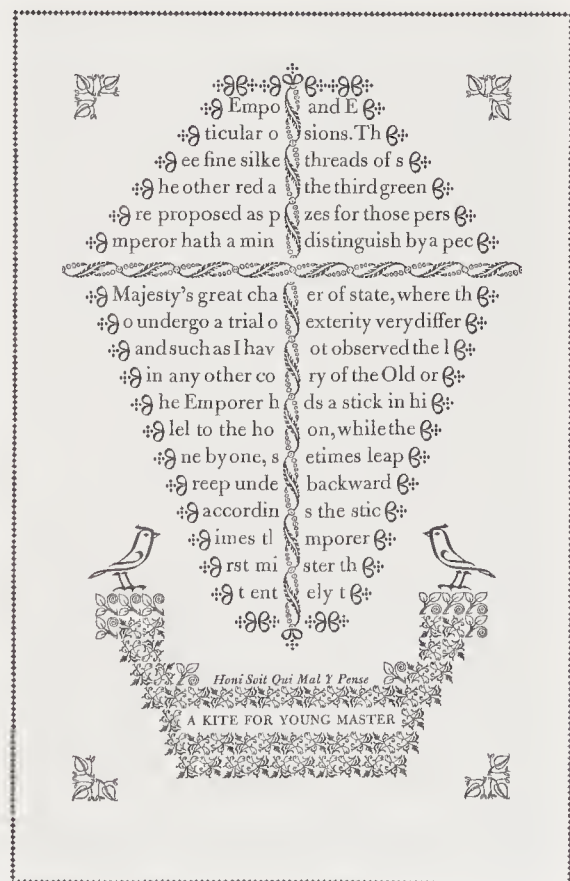 Empo and E
ticular o sions. Th
ee fine silke threads of s
he other red a the third green
re proposed as p zes for those pers
mperor hath a min distinguish by a pec
Majesty's great cha er of state, where th
o undergo a trial o exterity very differ
and such as I hav ot observed the l
in any other co ry of the Old or
he Emporer h ds a stick in hi
lel to the ho on, while the
ne by one, s etimes leap
reep unde backward
accordin s the stic
imes tl mporer
rst mi ster th
t ent ely t
Honi Soit Qui Mal Y Pense
A KITE FOR YOUNG MASTER